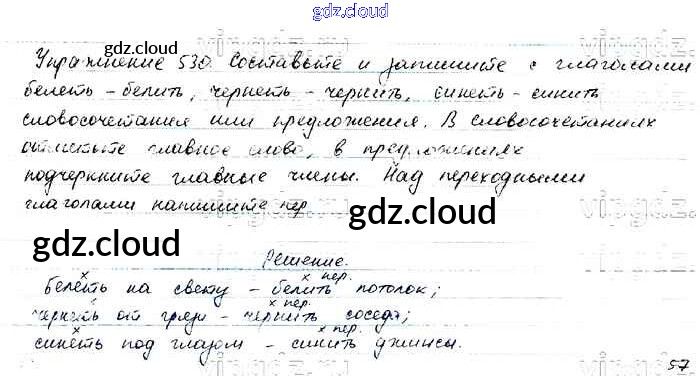 gdz.cloud
gdz.cloud gdz.cloud
Упражнение 530. Составьте и запишите с глаголами
белеть - белить, чернеть - чернить, синеть - синить
словосочетания или предложения. В словосочетаниях
отметьте главное слово, в предложениях
подчеркните главные члены. Над переходными
глаголами напишите пер
gdz.cloud
gdz.cloud
Решение.
х х пер.
белеть на свету - белить потолок;
х пер.
чернеть от грязи - чернить соседа;
х х пер.
синеть под глазом - синить джинсы.
57